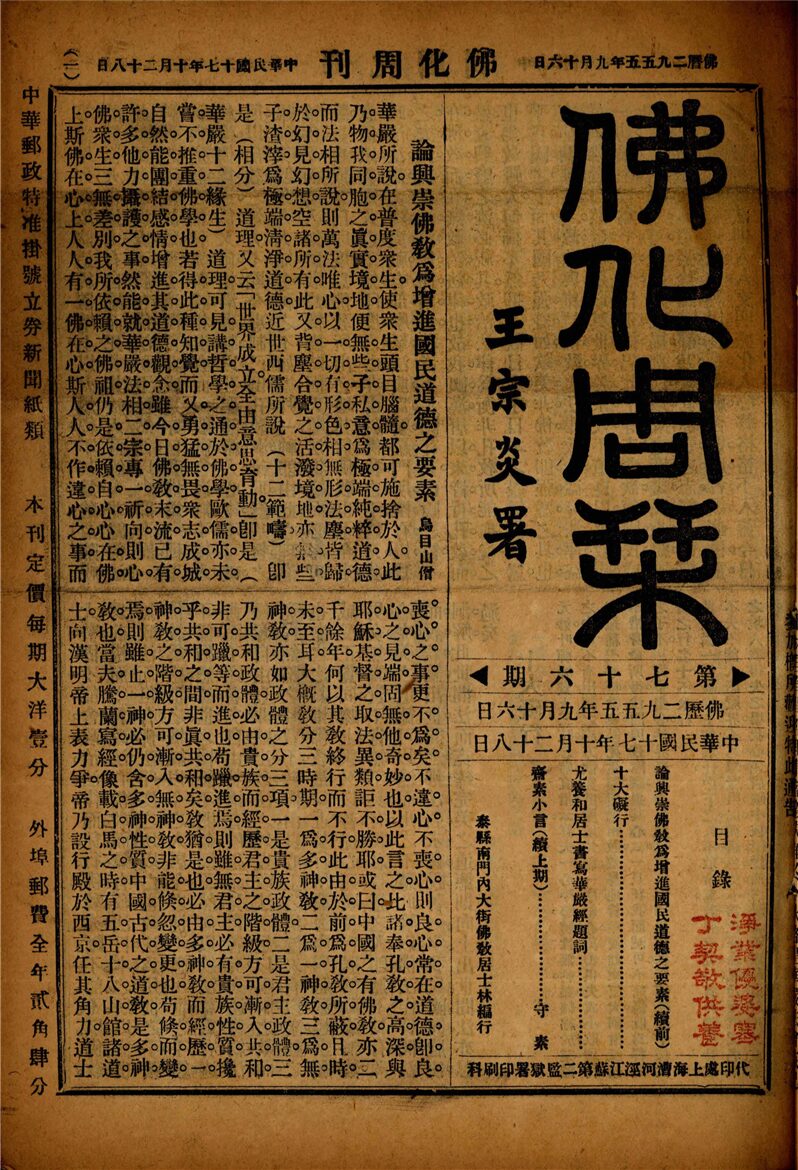 佛曆二九五五年九月十六日
佛化周刊
中華民國十七年十月二十八日
(一)
佛化周栞
王宗炎署
第七十六期
佛曆二九五五年九月十六日
中華民國十七年十月二十八日
目錄
論興崇佛教爲增進國民道德之要素(續前)
十大礙行
尤養和居士書寫華嚴經題詞
齋素小言(續上期)…………守素
泰縣南門內大街佛教居士林編行
代印處上海漕河涇江蘇第二監獄署印刷科
論興崇佛教爲增進國民道德之要素 烏目山僧
華嚴所說。在普度衆生。使衆生頭目腦髓。都可施捨於人。此
乃物我同胞之眞實境地。便無些子私意。爲極端純粹道德。
而法相所說。則萬法唯心。以一切有形色相。無形法塵。皆歸
於幻見幻想。空諸所有。此又背塵合覺之活潑境地。亦無些
子渣滓。爲極端淸淨道德。近世西儒所說(十二範疇)卽
是(相分)道理。又云「世界成立。全由意思盲動」卽是(
華嚴十二緣生)道理。可見講哲學之通於佛學。歐儒亦未
嘗不推重佛學也。若得此種知覺。而又勇猛無畏。衆志成城。
自然能團結感情。增進其道德觀念。雖今日佛教末流。已有
許多他力攝護之事。然能就華嚴法相二宗。專一祈向。則心
佛衆生。三無差別。我所依賴之佛祖。仍是依賴自心。心在佛
上。斯佛在心上。人人有一佛在心。斯人人不作違心之事。而
喪心之事。更不爲矣。不違心。不喪心。則良心常在。道德卽良
心之見端。固無他奇妙也。以此言之。比諸奉孔敎之高深。與
耶穌基督之取法異類。詎不勝耶。或曰。中國之有佛敎。亦二
千餘年。何以其敎終行而不行。此由於前爲孔敎所蔽。且時
未至耳。大槪敎分三時期。一爲多神敎。二爲一神敎。三爲無
神敎。亦如政體之分三項。一是貴族政體。二是君主政體。三
乃共和政體。必由貴族而經歷君主之階級。方可漸入共和。
非可躐等而進也。苟躐進焉。則雖無君主。必有貴族性質攙
乎共和之間。非眞共和矣。敎猶是也。必由多神敎而經歷一
神敎之階級。方可漸入無神敎。非能倏忽變更也。苟倏而變
焉。則雖止一神。必仍含多神性質。中國古代之道敎。是多神
敎也。當夫騰蘭寫經像載白馬之時。有五岳十八山館諸道
士。向漢明帝上表力爭。帝乃設行殿於西京。任其角力。道士
中華郵政特准掛號立券新聞紙類 本刊定價每期大洋壹分 外埠郵費全年貳角肆分